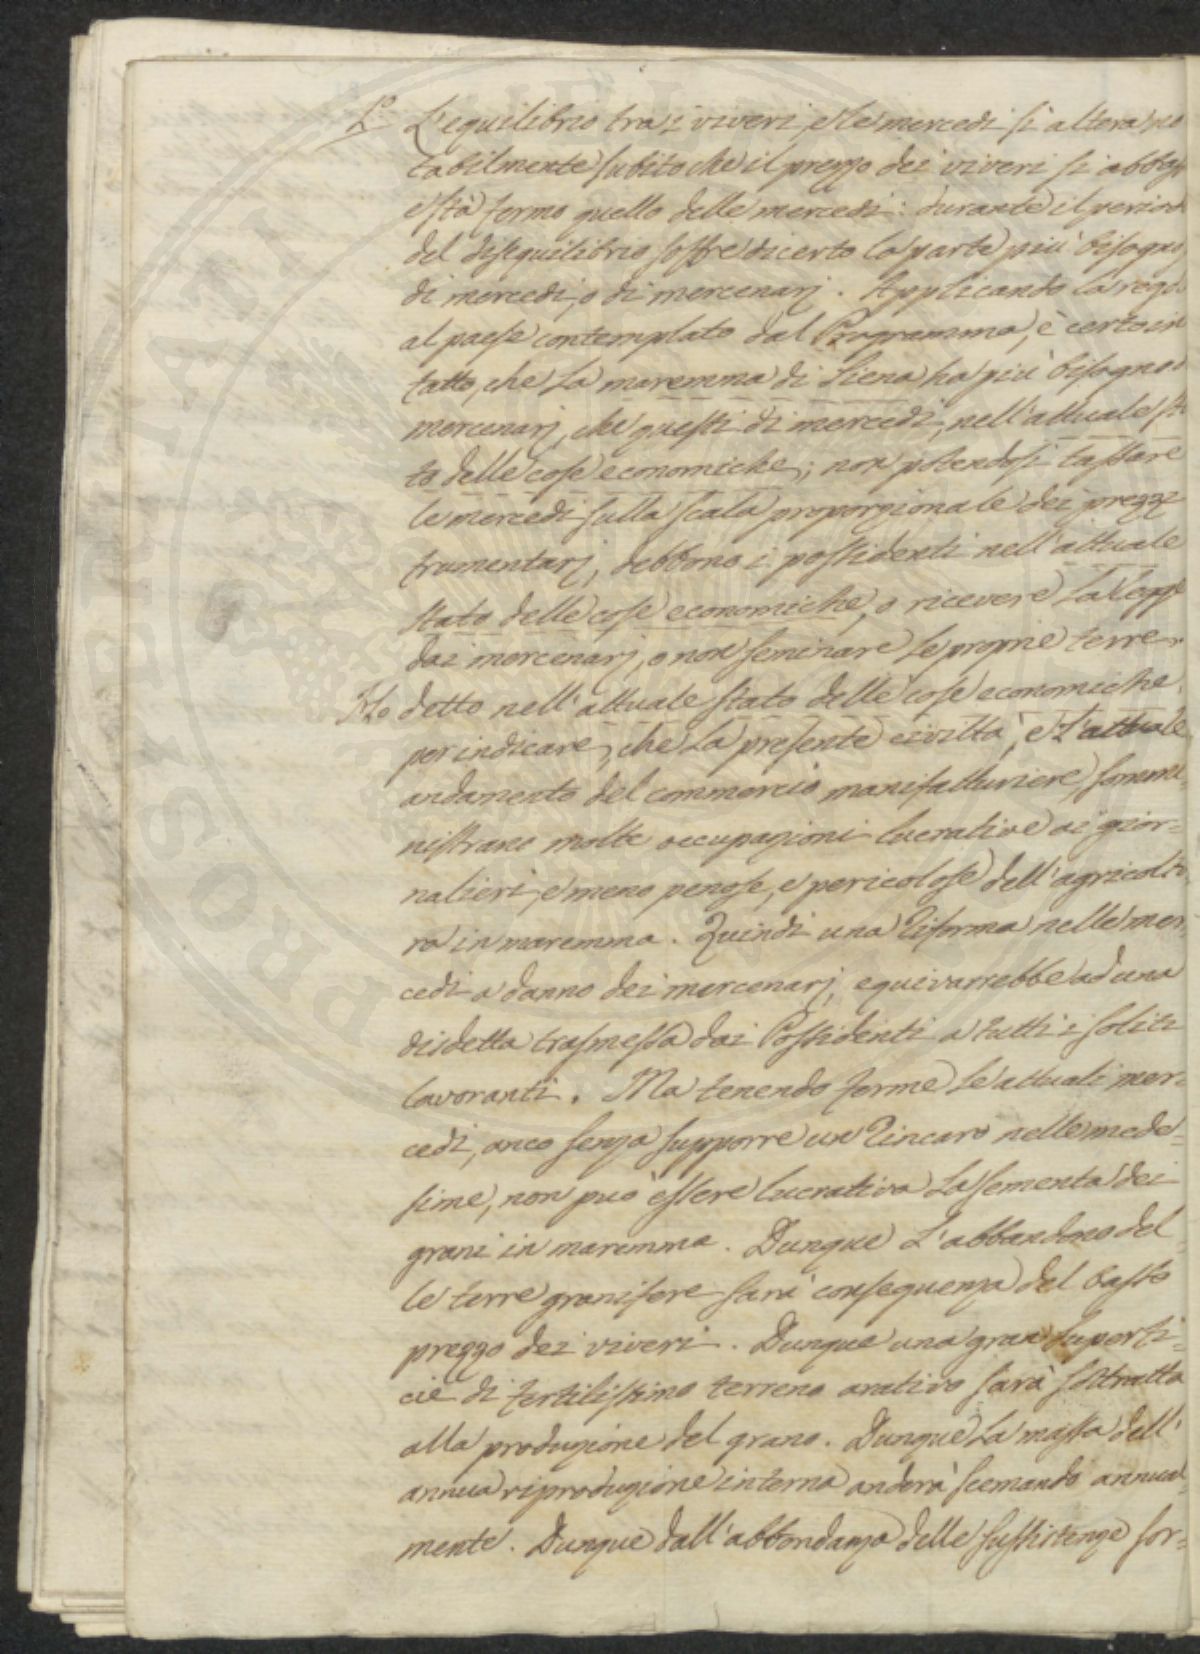 1.o L'equilibrio tra i viveri, e le mercedi si altera no
tabilmente subito che il prezzo dei viveri si abbassa
e sta fermo quello delle mercedi: durante il period
del disequilibrio soffre di certo la parte più bisogno
di mercedi, o di mercenarj. Applicando la rego
al paese contemplato dal Programma, è certo in
tatto, che la maremma di Siena ha più bisogno d
mercenarj, che questi di mercedi, nell'attuale sta
to delle cose economiche; non potendosi tassare
le mercedi sulla scala proporzionale dei prezzi
frumentarj, debbono i possidenti nell'attuale
stato delle cose economiche, o ricevere la Legge
dai mercenarj, o non seminare le proprie terre.
Ho detto nell'attuale stato delle cose economiche,
per indicare, che la presente civiltà, e l'attuale
andamento del commercio manifatturiere, sommi
nistrano molte occupazioni lucrative ai gior=
nalieri, e meno penose, e pericolose dell'agricoltu
ra in maremma. Quindi una Riforma nelle mer
cedi a danno dei mercenarj, equivarrebbe ad una
disdetta trasmessa dai Possidenti a tutti i soliti
lavoranti. Ma tenendo ferme le attuali mer=
cedi, anco senza supporre un Rincaro nelle mede=
sime, non può essere lucrativa la sementa dei
grani in maremma. Dunque l'abbandono del=
le terre granifere sarà conseguenza del basso
prezzo dei viveri. Dunque una gran superfi=
cie di fertilissimo terreno arativo sarà sottratta
alla produzione del grano. Dunque la massa dell'
annua riproduzione interna anderà scemando annual=
mente. Dunque dall'abbondanza delle sussistenze for=
PROSPERITATI